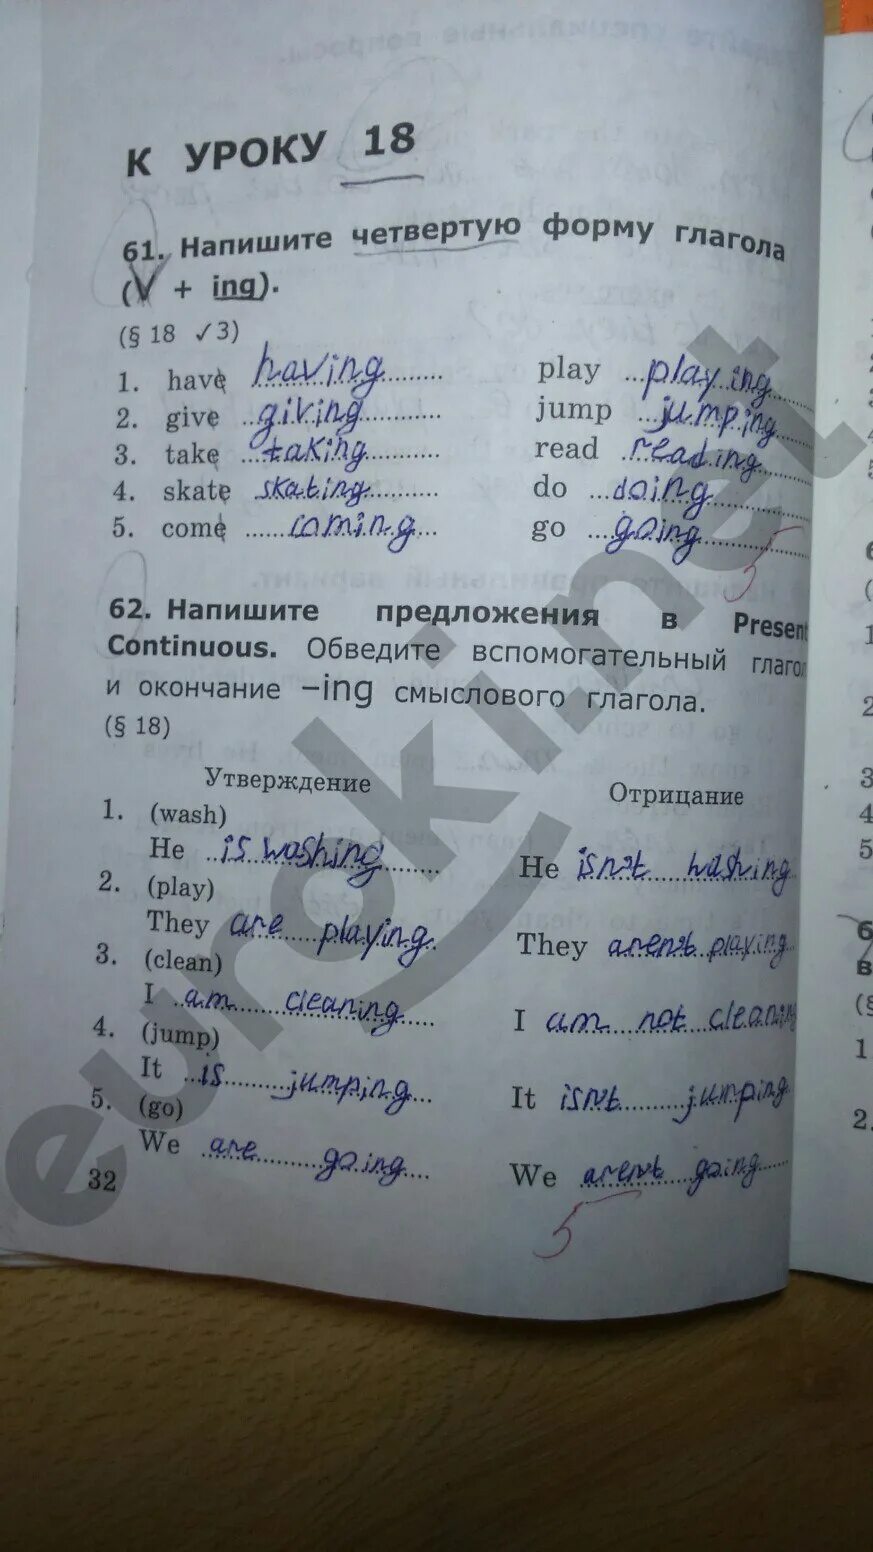 К УРОКУ 18
61. Напишите четвертую форму глагола
(V + ing).
(§ 18 ✓3)
1. have having play playing
2. give giving jump jumping
3. take taking read reading
4. skate skating do doing
5. come coming go going
5
62. Напишите предложения в Present
Continuous. Обведите вспомогательный глагол
и окончание –ing смыслового глагола.
(§ 18)
Утверждение Отрицание
1. (wash)
He is washing He isn't washing
2. (play)
They are playing They aren't playing
3. (clean)
I am cleaning I am not cleaning
4. (jump)
It is jumping It isn't jumping
5. (go)
We are going We aren't going
32
5
euroki.net